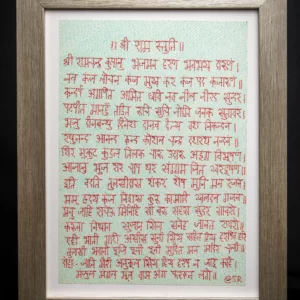 ॥ श्री राम स्तुति ॥
श्री रामचन्द्र कृपालु भजमन हरण भवभय दारुणं
नव कंज लोचन कंज मुख कर कंज पद कंजारुणं
कन्दर्प अगणित अमित छवि नव नील नीरद सुन्दरं
पटपीत मानहुँ तडित रुचि शुचि नौमि जनक सुतावरं
भजु दीनबन्धु दिनेश दानव दैत्य वंश निकन्दनं
रघुनन्द आनन्द कन्द कौशल चन्द दशरथ नन्दनं
सिर मुकुट कुंडल तिलक चारु उदारु अंग विभूषणं
आजानु भुज शर चाप धर संग्राम जित खरदूषणं
इति वदति तुलसीदास शंकर शेष मुनि मन रंजनं
मम हृदय कंज निवास कुरु कामादि खलदल गंजनं
मनु जाहि राचेउ मिलिहि सो बरु सहज सुंदर सांवरो
करुना निधान सुजान सील सनेह जानत रावरो
एही भांति गौरी असीस सुनी सिय सहित हिय हरषीं अली
तुलसी भवानी पूजि पुनि पुनि मुदित मन मंदिर चली
दोहा- जानि गौरी अनुकूल सिय हिय हरषु न जाइ कहि
मंजुल मंगल मूल वाम अंग फरकन लगे ॥
@SR